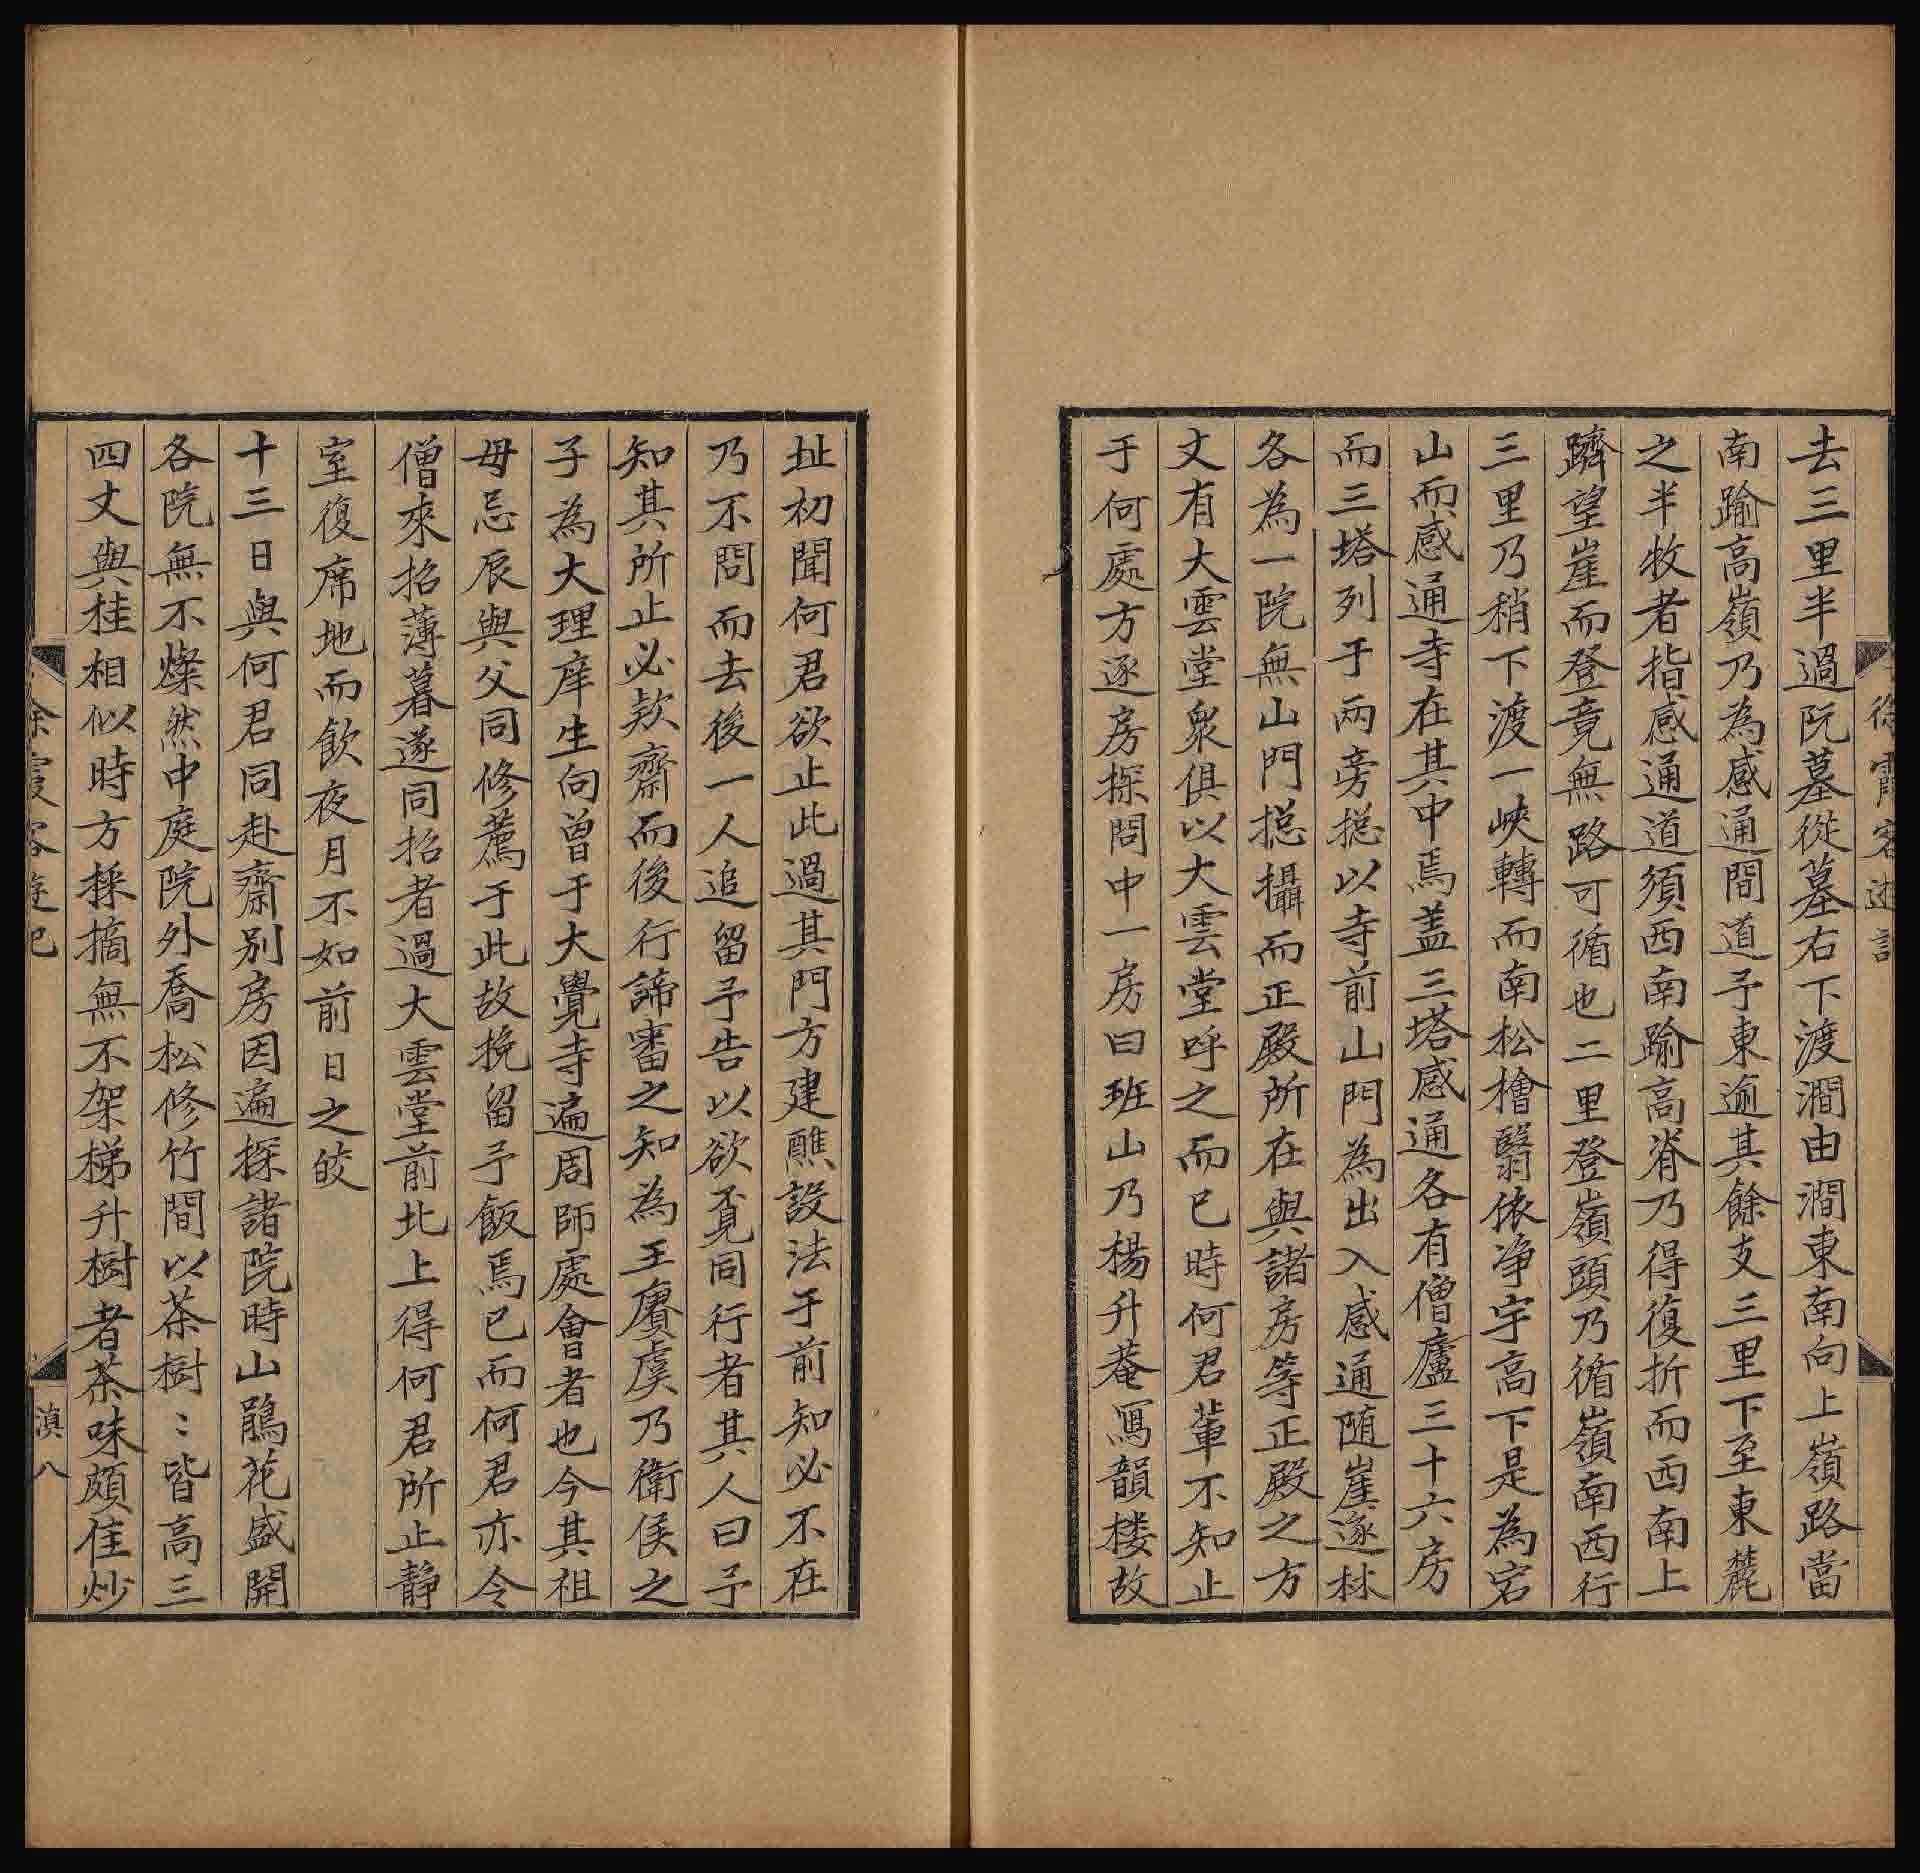 徐霞客遊記
去三里半過阮墓從墓右下渡澗由澗東南向上嶺路當
南踰高嶺乃為感通間道予東逾其餘支三里下至東麓
之半牧者指感通道須西南踰高脊乃得復折而西南上
躋望崖而登竟無路可循也二里登嶺頭乃循嶺南西行
三里乃稍下渡一峽轉而南松檜翳依净宇高下是為宕
山而感通寺在其中焉盖三塔感通各有僧廬三十六房
而三塔列于兩旁摠以寺前山門為出入感通随崖逐林
各為一院無山門摠攝而正殿所在與諸房等正殿之方
丈有大雲堂衆俱以大雲堂呼之而已時何君輩不知止
于何處方逐房探問中一房曰班山乃楊升菴寫韻楼故
址初聞何君欲止此過其門方建醮設法于前知必不在
乃不問而去後一人追留予告以欲覔同行者其人曰予
知其所止必欵齋而後行諦審之知為王賡虞乃衛侯之
子為大理庠生向曾于大覺寺遍周師處會者也今其祖
母忌辰與父同修薦于此故挽留予飯焉已而何君亦令
僧來招薄暮遂同招者過大雲堂前北上得何君所止靜
室復席地而飲夜月不如前日之皎
十三日與何君同赴齋別房因遍探諸院時山鵑花盛開
各院無不燦然中庭院外喬松修竹間以茶樹〻皆高三
四丈與桂相似時方採摘無不架梯升樹者茶味頗佳炒
徐霞客遊記
滇八